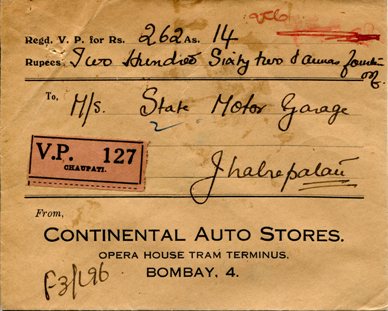 Regd. V. P. for Rs. 262 As. 14
Rupees Two Hundred Sixty two & annas fourteen
To, M/s. State Motor Garage
V.P. 127
CHAUPATI.
Jhalrapatan
From,
CONTINENTAL AUTO STORES.
OPERA HOUSE TRAM TERMINUS.
BOMBAY, 4.